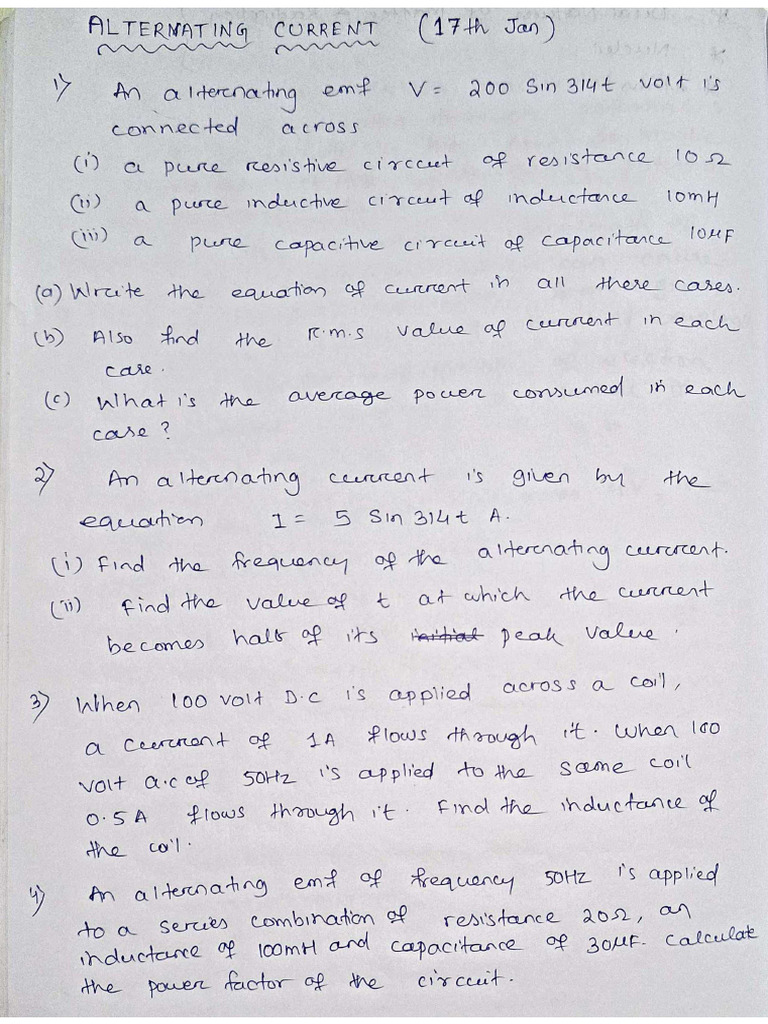 ALTERNATING CURRENT (17th Jan)
1) An alternating emf V = 200 Sin 314t volt is
connected across
(i) a pure resistive circuit of resistance 10Ω
(ii) a pure inductive circuit of inductance 10mH
(iii) a pure capacitive circuit of capacitance 10μF
(a) Write the equation of current in all these cases.
(b) Also find the r.m.s value of current in each
case.
(c) What is the average power consumed in each
case?
2) An alternating current is given by the
equation I = 5 Sin 314t A.
(i) Find the frequency of the alternating current.
(ii) Find the value of t at which the current
becomes half of its initial peak value.
3) When 100 volt D.C is applied across a coil,
a current of 1A flows through it. When 100
volt a.c of 50Hz is applied to the same coil
0.5A flows through it. Find the inductance of
the coil.
4) An alternating emf of frequency 50Hz is applied
to a series combination of resistance 20Ω, an
inductance of 100mH and capacitance of 30μF. Calculate
the power factor of the circuit.